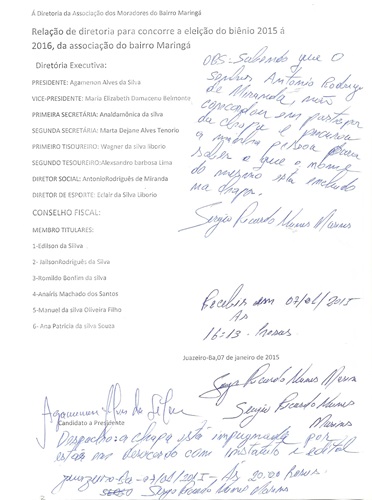 Á Diretoria da Associação dos Moradores de Bairro Maringá
Relação de diretoria para concorre a eleição do biênio 2015 á
2016, da associação do bairro Maringá
Diretória Executiva:
PRESIDENTE: Agamenon Alves da Silva
VICE-PRESIDENTE: Maria Elizabeth Damaceno Belmonte
PRIMEIRA SECRETÁRIA: Analdamônica da silva
SEGUNDA SECRETÁRIA: Marta Dejane Alves Tenorio
PRIMEIRO TISOUREIRO: Wagner da silva liborio
SEGUNDO TESOUREIRO: Alexsandro barbosa Lima
DIRETOR SOCIAL: AntonioRodriguês de Miranda
DIRETOR DE ESPORTE: Eclair da Silva Liborio
CONSELHO FISCAL:
MEMBRO TITULARES:
1-Edilson da Siliva
2- JailsonRodriguês da Silva
3-Romildo Bonfim da silva
4-Anaíris Machado dos Santos
5-Manuel da silva Oliveira Filho
6- Ana Patrícia da silva Souza
OBS-Sabendo que o
senhor Antonio Rodrig
de Miranda, não
concordou em participar
da chapa e procurou
a minha pessoa para
saber o que o nome
do mesmo está incluido
na chapa.
Sergio Ricardo Nunes Marins
Recebido em 07/01/2015
As
16:13 horas
Juazeiro-Ba,07 de janeiro de 2015
Sergio Ricardo Nunes Marins
Sergio Ricardo Nunes
Marins
Agamenon Alves da Silva
Candidato a Presidente
Despacho: a chapa está impugnada por
está em desacordo com estatuto e edital
Juazeiro-Ba-07/01/2015- Às 20:00 horas.
Sergio Ricardo Nunes Marins